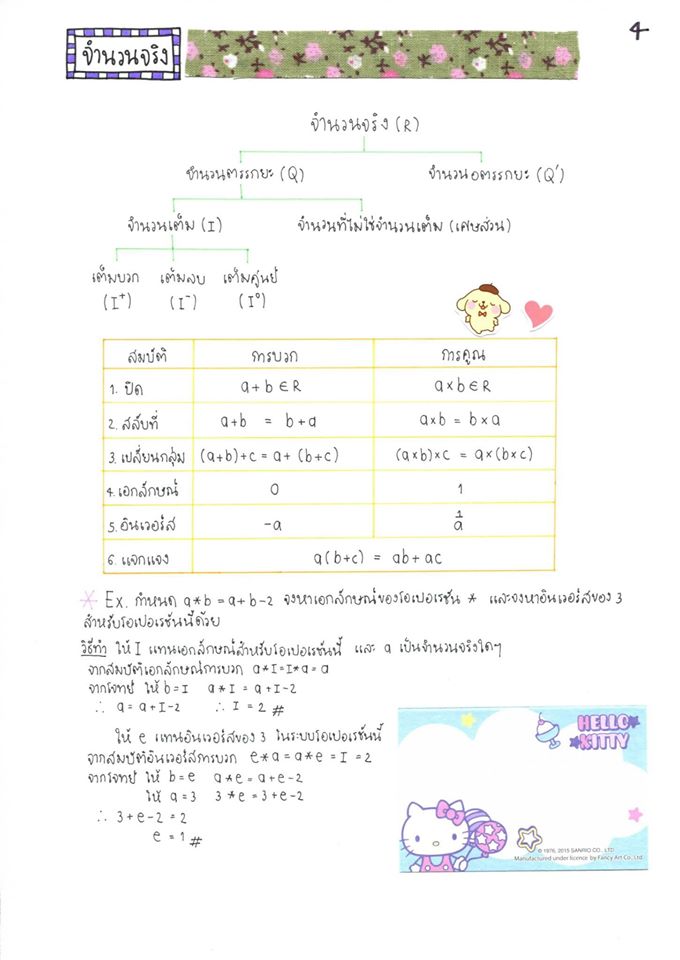 4
จำนวนจริง
จำนวนจริง (R)
จำนวนตรรกยะ (Q)
จำนวนอตรรกยะ (Q')
จำนวนเต็ม (I)
จำนวนที่ไม่ใช่จำนวนเต็ม (เศษส่วน)
เต็มบวก เต็มลบ เต็มศูนย์
(I⁺) (I⁻) (I⁰)
สมบัติ การบวก การคูณ
1. ปิด a+b ∈ R a×b ∈ R
2. สลับที่ a+b = b+a a×b = b×a
3. เปลี่ยนกลุ่ม (a+b)+c = a+(b+c) (a×b)×c = a×(b×c)
4. เอกลักษณ์ 0 1
5. อินเวอร์ส -a 1/a
6. แจกแจง a(b+c) = ab+ac
* Ex. กำหนด a*b = a+b-2 จงหาเอกลักษณ์ของโอเปอเรชั่น * และจงหาอินเวอร์สของ 3
สำหรับโอเปอเรชั่นนี้ด้วย
วิธีทำ ให้ I แทนเอกลักษณ์สำหรับโอเปอเรชั่นนี้ และ a เป็นจำนวนจริงใดๆ
จากสมบัติเอกลักษณ์การบวก a*I = I*a = a
จากโจทย์ ให้ b=I a*I = a+I-2
∴ a = a+I-2 ∴ I = 2 #
ให้ e แทนอินเวอร์สของ 3 ในระบบโอเปอเรชั่นนี้
จากสมบัติอินเวอร์สการบวก e*a = a*e = I = 2
จากโจทย์ ให้ b=e a*e = a+e-2
ให้ a=3 3*e = 3+e-2
∴ 3+e-2 = 2
e = 1 #
HELLO
KITTY
© 1976, 2015 SANRIO CO., LTD.
Manufactured under licence by Fancy Art Co., Ltd.